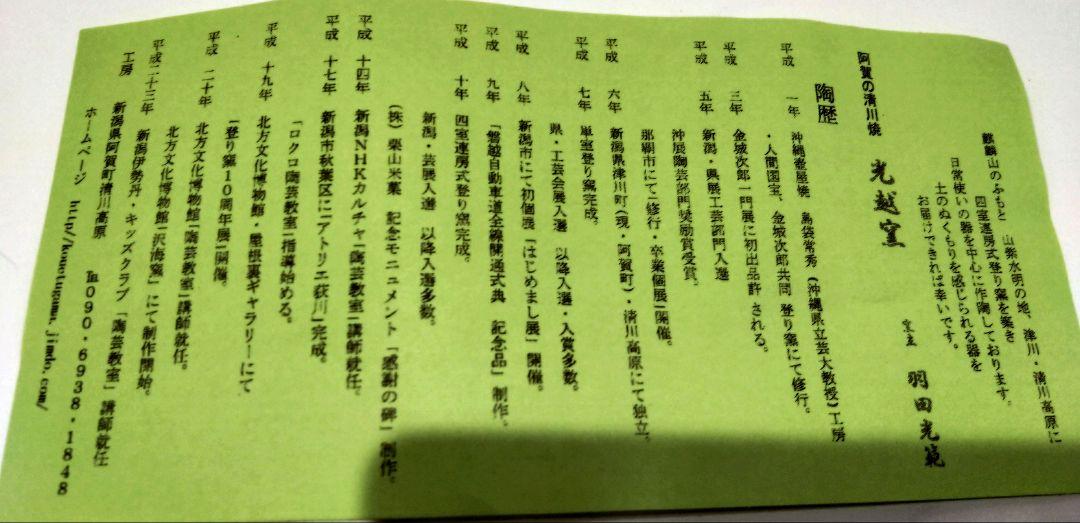 麒麟山のふもと 山紫水明の地、津川・清川高原に
四室連房式登り窯を築き
日常使いの器を中心に作陶しております。
土のぬくもりを感じられる器を
お届けできれば幸いです。
阿賀の清川焼 光越窯 窯主 羽田光範
陶歴
平成 一年 沖縄壺屋焼 島袋常秀(沖縄県立芸大教授)工房
・人間国宝、金城次郎共同 登り窯にて修行。
平成 三年 金城次郎一門展に初出品許される。
新潟・県展工芸部門入選
平成 五年 沖展陶芸部門奨励賞受賞。
那覇市にてご修行・卒業個展」開催。
平成 六年 新潟県津川町(現・阿賀町)・清川高原にて独立。
平成 七年 単室登り窯完成。
県・工芸会展入選 以降入選・入賞多数。
平成 八年 新潟市にて初個展「はじめまし展」開催。
平成 九年 「磐越自動車道全線開通式典 記念品」制作。
平成 十年 四室連房式登り窯完成。
新潟・芸展入選 以降入選多数。
(株)栗山米菓 記念モニュメント「感謝の碑」制作。
平成 十四年 新潟NHKカルチャー「陶芸教室」講師就任。
平成 十七年 新潟市秋葉区に「アトリエ荻川」完成。
「ロクロ陶芸教室」指導始める。
平成 十九年 北方文化博物館・屋根裏ギャラリーにて
「登り窯10周年展」開催。
平成 二十年 北方文化博物館「陶芸教室」講師就任。
北方文化博物館「沢海窯」にて制作開始。
平成二十三年 新潟伊勢丹・キッズクラブ「陶芸教室」講師就任
工房 新潟県阿賀町清川高原 ℡090・6938・1848
ホームページ http://kouetugama.jimdo.com/